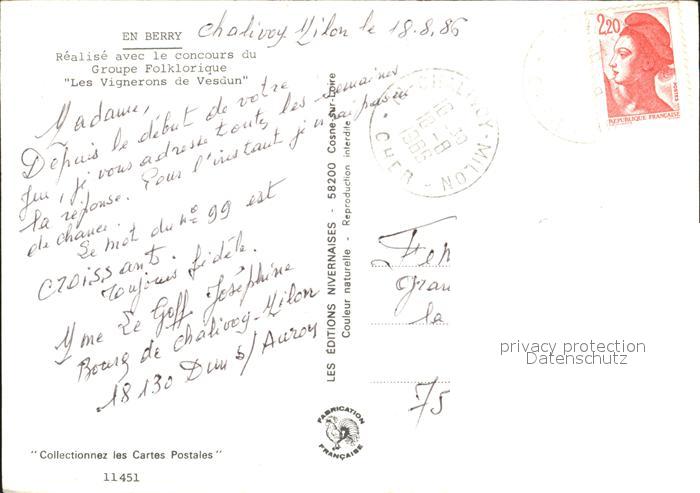 EN BERRY
Réalisé avec le concours du
Groupe Folklorique
"Les Vignerons de Vesdun"
Chalivoy Milon le 18.8.86
Madame,
Depuis le début de votre
jeu, je vous adresse toutes les semaines
la réponse. Pour l'instant je n'ai pas eu
de chance.
Le mot du n° 99 est
CROISSANT.
Toujours fidèle.
Mme Le Goff Joséphine
Bourg de Chalivoy-Milon
18130 Dun s/ Auron
LES ÉDITIONS NIVERNAISES - 58200 Cosne-sur-Loire
Couleur naturelle - Reproduction interdite
CHALIVOY-MILON
18-8
1986
CHER
2,20
POSTES
REPUBLIQUE FRANÇAISE
Fem
Gran
la
75
privacy protection
Datenschutz
FABRICATION
FRANÇAISE
"Collectionnez les Cartes Postales"
11451